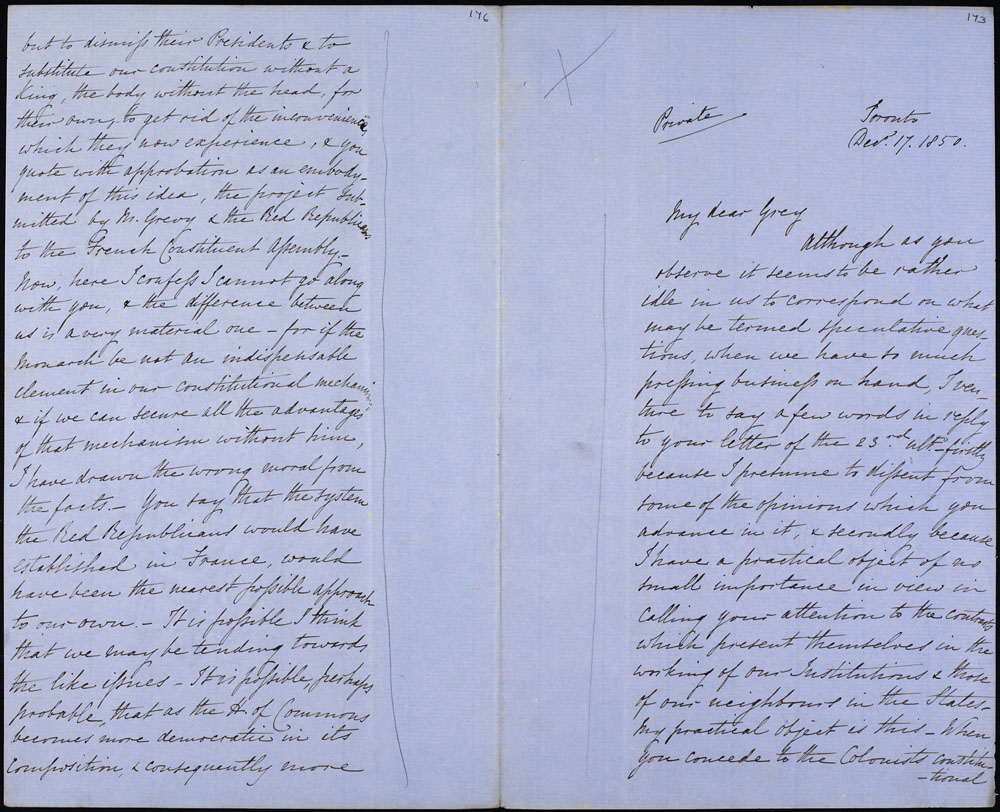 176
but to dismiss their Presidents & to
substitute our constitution without a
King, the body without the head, for
their own, to get rid of the inconvenience,
which they now experience, & you
quote with approbation as an embody-
ment of this idea, the project sub-
mitted by Mr. Grevy & the Red Republicans
to the French Constituent Assembly.-
Now, here I confess I cannot go along
with you, & the difference between
us is a very material one - for if the
Monarch be not an indispensable
element in our constitutional mechanism
& if we can secure all the advantages
of that mechanism without him,
I have drawn the wrong moral from
the facts. - You say that the system
the Red Republicans would have
established in France, would
have been the nearest possible approach
to our own. - It is possible I think
that we may be tending towards
the like issues - It is possible, perhaps
probable, that as the H. of Commons
becomes more democratic in its
composition, & consequently more
173
Private
Toronto
Decr. 17. 1850.
My dear Grey
Although as you
observe it seems to be rather
idle in us to correspond on what
may be termed speculative ques-
tions, when we have so much
pressing business on hand, I ven-
ture to say a few words in reply
to your letter of the 23rd. ult. - firstly
because I presume to dissent from
some of the opinions which you
advance in it, & secondly because
I have a practical object of no
small importance in view in
calling your attention to the contrasts
which present themselves in the
working of our Institutions & those
of our neighbours in the States -
My practical object is this - When
you concede to the Colonists constitu
-tional